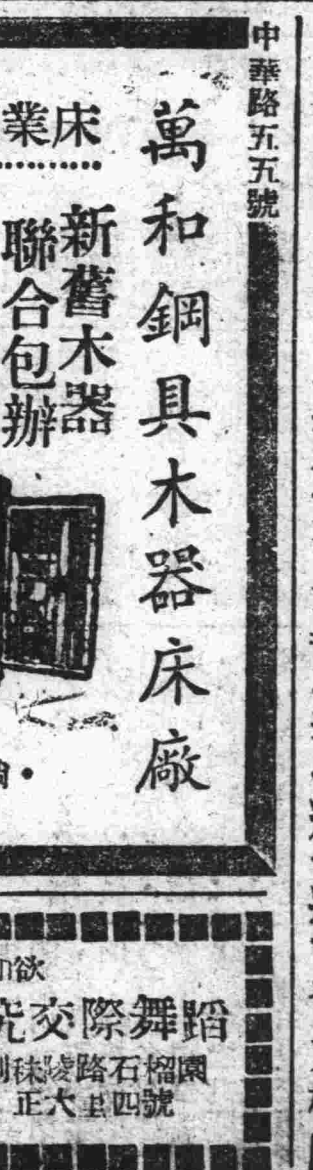 中華路五五號
萬和鋼具木器床廠
床業
新舊木器
聯合包辦
欲
究交際舞蹈
秣陵路石榴園
正大里四號